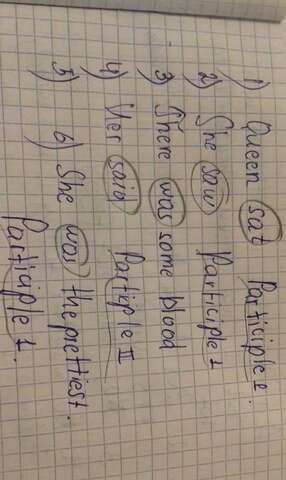 1) Queen sat Participle I.
2) She saw Participle I
3) There was some blood
4) Her said Participle II
5)
6) She was the prettiest.
Participle I.